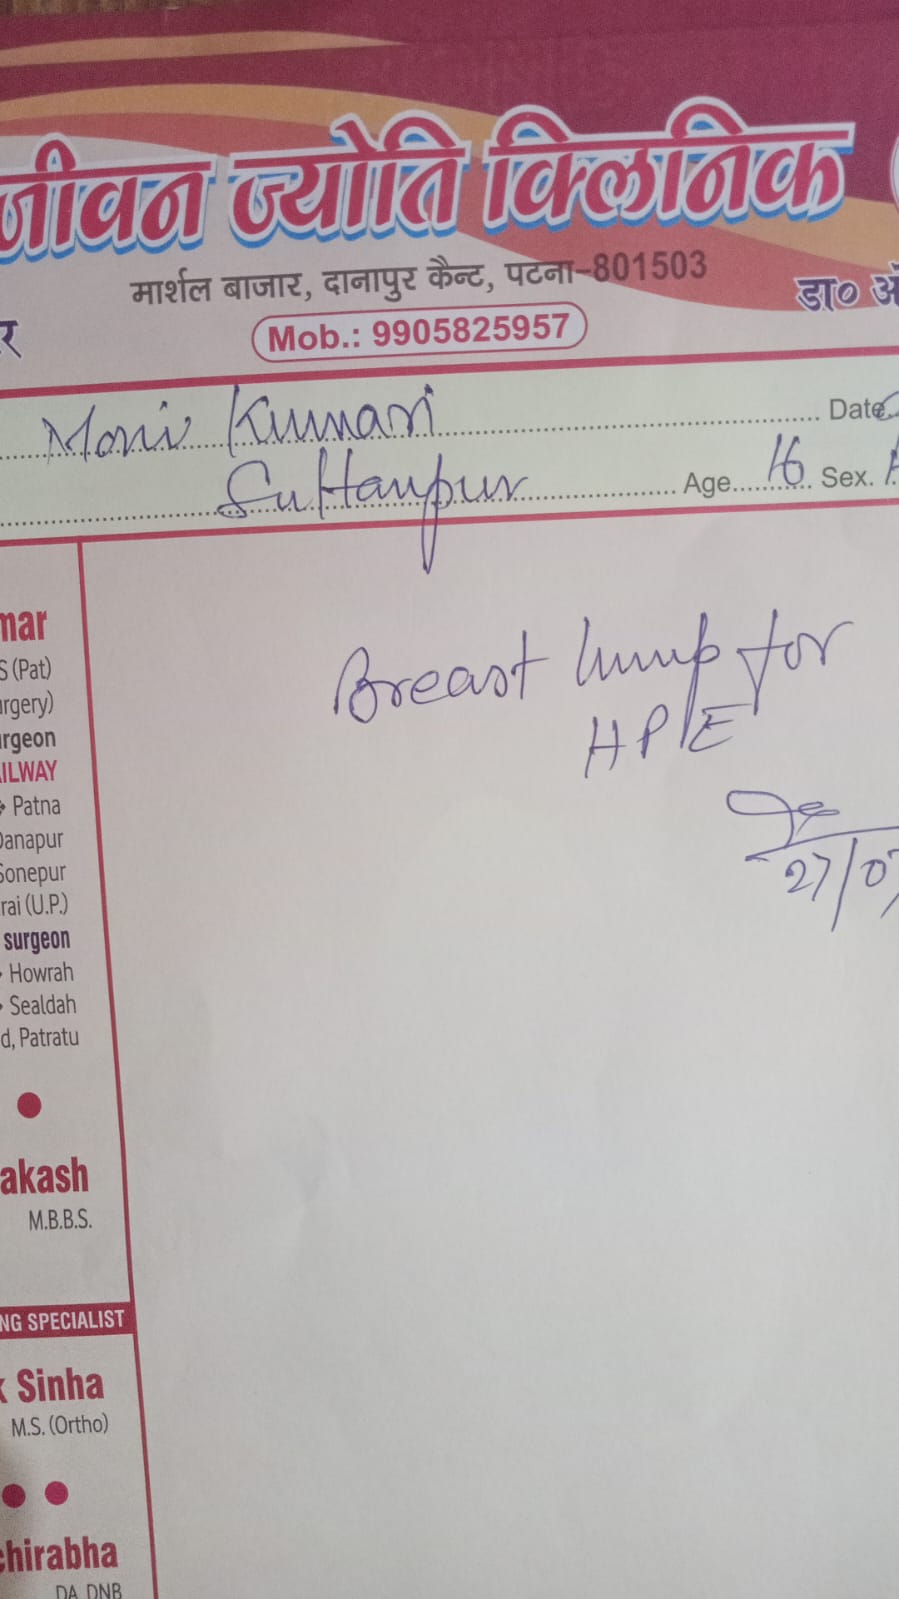 जीवन ज्योति क्लिनिक
मार्शल बाजार, दानापुर कैन्ट, पटना-801503
डा० अ
र
Mob.: 9905825957
Moni Kumari Date
Sultanpur Age 16 Sex.
mar
S (Pat)
urgery)
urgeon
AILWAY
Patna
Danapur
Sonepur
rai (U.P.)
surgeon
Howrah
Sealdah
d, Patratu
Breast lump for
HPE
27/07
akash
M.B.B.S.
NG SPECIALIST
k Sinha
M.S. (Ortho)
chirabha
DA DNB